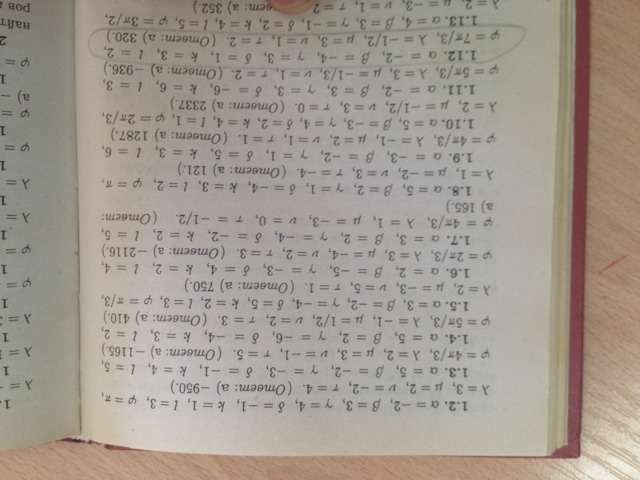 1.2. α = −2, β = 3, γ = 4, δ = −1, k = 1, l = 3, φ = π,
λ = 3, μ = 2, ν = −2, τ = 4. (Ответ: а) −950.)
1.3. α = 5, β = −2, γ = −3, δ = −1, k = 4, l = 5,
φ = 4π/3, λ = 2, μ = 3, ν = −1, τ = 5. (Ответ: а) −1165.)
1.4. α = 5, β = 2, γ = −6, δ = −4, k = 3, l = 2,
φ = 5π/3, λ = −1, μ = 1/2, ν = 2, τ = 3. (Ответ: а) 410.)
1.5. α = 3, β = −2, γ = −4, δ = 5, k = 2, l = 3, φ = π/3
λ = 2, μ = −3, ν = 5, τ = 1. (Ответ: а) 750.)
1.6. α = 2, β = −5, γ = −3, δ = 4, k = 2, l = 4,
φ = 2π/3, λ = 3, μ = −4, ν = 2, τ = 3. (Ответ: а) −2116.)
1.7. α = 3, β = 2, γ = −4, δ = −2, k = 2, l = 5,
φ = 4π/3, λ = 1, μ = −3, ν = 0, τ = −1/2. (Ответ:
а) 165.)
1.8. α = 5, β = 2, γ = 1, δ = −4, k = 3, l = 2, φ = π,
λ = 1, μ = −2, ν = 3, τ = −4. (Ответ: а) 121.)
1.9. α = −3, β = −2, γ = 1, δ = 5, k = 3, l = 6,
φ = 4π/3, λ = −1, μ = 2, ν = 1, τ = 1. (Ответ: а) 1287.)
1.10. α = 5, β = −3, γ = 4, δ = 2, k = 4, l = 1, φ = 2π/3,
λ = 2, μ = −1/2, ν = 3, τ = 0. (Ответ: а) 2337.)
1.11. α = −2, β = 3, γ = 3, δ = −6, k = 6, l = 3,
φ = 5π/3, λ = 3, μ = −1/3, ν = 1, τ = 2. (Ответ: а) −936.)
1.12. α = −2, β = −4, γ = 3, δ = 1, k = 3, l = 2,
φ = 7π/3, λ = −1/2, μ = 3, ν = 1, τ = 2. (Ответ: а) 320.)
1.13. α = 4, β = 3, γ = −1, δ = 2, k = 4, l = 5, φ = 3π/2,
λ = 2, μ = −3, ν = 1, τ = 2 (Ответ: а) 352.)